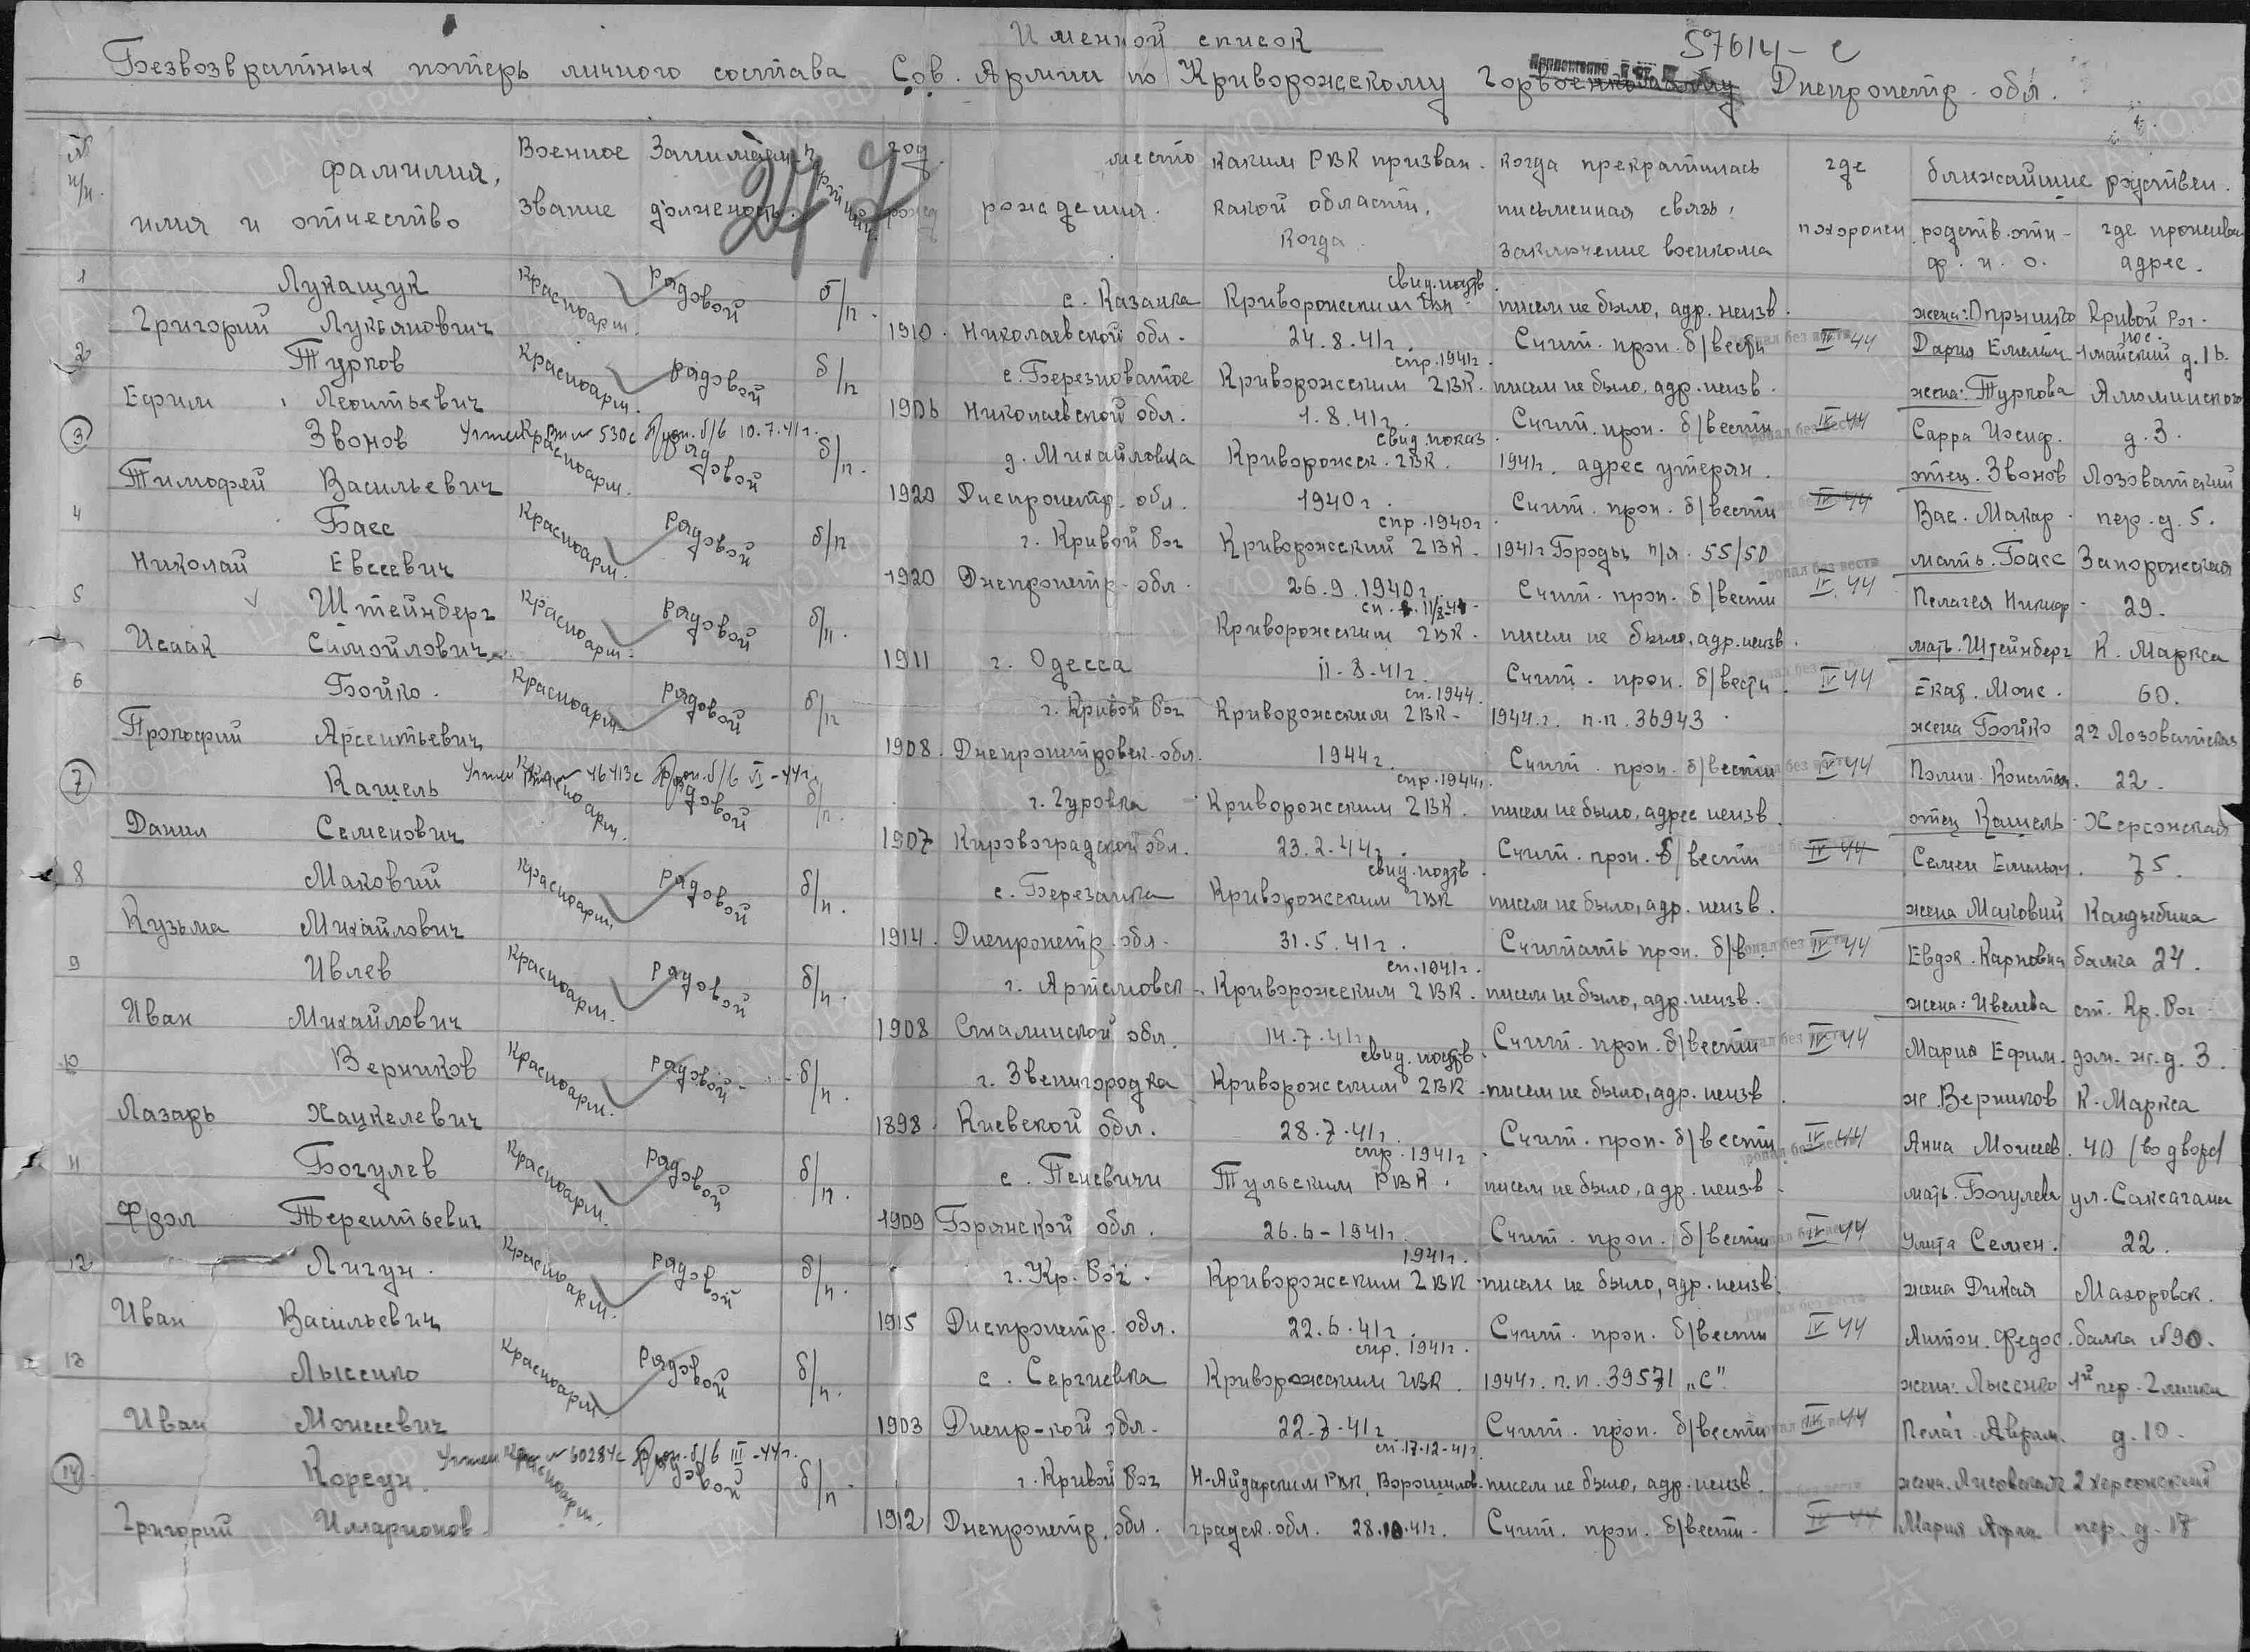 Именной список
57614-с
Безвозвратных потерь личного состава Сов. Армии по Криворожскому Горвоенкомату Днепропетр. обл.
№ п/п. фамилия, имя и отчество Военное звание Занимаем. должность. год рожд место рождения. каким РВК призван. какой области, когда. когда прекратилась письменная связь, заключение военкома где похоронен ближайшие родствен. родств. отн- ф. и. о. где прожива адрес.
1 Лукащук Красноарм. Рядовой б/п. с. Казанка Криворожским ГВК свид. подтв. писем не было, адр. неизв. жена: Опрышко Кривой Рог.
Григорий Лукьянович 1910. Николаевской обл. 24.8.41г. Счит. проп. б/вести IV 44 Дария Емельян. пос. 1 майский д.1б.
2 Турков Красноарм. рядовой б/п с. Березноватое спр. 1941г. Криворожским ГВК. писем не было, адр. неизв. жена: Туркова Алюминского
Ефим Леонтьевич 1906 Николаевской обл. 1.8.41г. Счит. проп. б/вести IV 44 Сарра Иосиф. д.3.
3 Звонов Учтен № 530с Проп. б/в 10.7.41г. Красноарм. рядовой б/п. д. Михайловка свид. показ. Криворожск. ГВК. 1941г. адрес утерян. отец. Звонов Лозоватский
Тимофей Васильевич 1920 Днепропетр. обл. 1940г. Счит. проп. б/вести IV 44 Вас. Макар. пер. д. 5.
4 Басс Красноарм. Рядовой б/п г. Кривой Рог спр. 1940г. Криворожский ГВК. 1941г Броды п/я. 55/50 мать. Басс Запорожская
Николай Евсеевич 1920 Днепропетр. обл. 26.9.1940г. Счит. проп. б/вести IV. 44 Пелагея Никиф. 29.
5 Штейнберг Красноарм. Рядовой б/п. Криворожским ГВК. писем не было, адр. неизв. мать. Штейнберг К. Маркса
Исаак Самойлович 1911 г. Одесса 11.8.41г. Счит. проп. б/вести. IV 44 Екат. Моис. 60.
6 Бойко. Красноарм. рядовой б/п г. Кривой Рог сп. 1944. Криворожским ГВК. 1944.г. п.п. 36943. жена Бойко 2я Лозоватская
Прокофий Арсентьевич 1908. Днепропетровск. обл. 1944г. Счит. проп. б/вести IV 44 Полин. Констан. 22.
7 Кашель Учтен № 46413с Проп. б/в VI-44г. Красноарм. рядовой б/п. г. Гуровка спр. 1944г. Криворожским ГВК. писем не было, адрес неизв. отец Кашель Херсонская
Данил Семенович 1907 Кировоградской обл. 23.2.44г. Счит. проп. б/вести IV 44 Семен Емельян. 75.
8 Маковий Красноарм. рядовой б/п. с. Березанка свид. подтв. Криворожским ГВК писем не было, адр. неизв. жена Маковий Кандыбина
Кузьма Михайлович 1914. Днепропетр. обл. 31.5.41г. Считать проп. б/в. IV 44 Евдок. Карповна балка 24.
9 Ивлев Красноарм. рядовой б/п. г. Артемовск сп. 1941г. Криворожским ГВК. писем не было, адр. неизв. жена: Ивелева ст. Кр. Рог
Иван Михайлович 1908 Сталинской обл. 14.7.41г Счит. проп. б/вести IV 44 Мария Ефим. дом. ж.д. 3.
10 Верников Красноарм. рядовой б/п. г. Звенигородка свид. подтв. Криворожским ГВК писем не было, адр. неизв. ж. Верников К. Маркса
Лазарь Хацкелевич 1898. Киевской обл. 28.7.41г. Счит. проп. б/вести IV 44 Анна Моисеев. 40 /во дворе/
11 Богулев Красноарм. рядовой б/п. с. Пеневичи спр. 1941г. Тульским РВК. писем не было, адр. неизв. мать. Богулева ул. Саксагани
Фрол Терентьевич 1909 Брянской обл. 26.6-1941г. Счит. проп. б/вести IV 44 Улита Семен. 22.
12 Лигун. Красноарм. рядовой б/п. г. Кр. Рог. 1941г. Криворожским ГВК писем не было, адр. неизв. жена Дикая Махоровск.
Иван Васильевич 1915 Днепропетр. обл. 22.6.41г. Счит. проп. б/вести IV 44 Антон. Федос. балка №90.
13 Лысенко Красноарм. Рядовой б/п. с. Сергиевка спр. 1941г. Криворожским ГВК. 1944г. п.п. 39571 „С" жена: Лысенко 1й пер. 2 линии
Иван Моисеевич 1903 Днепр-кой обл. 22.7.41г. Счит. проп. б/вести IV 44 Пелаг. Аврам. д.10.
14 Корсун. Учтен № 60284с Проп. б/в III-44г. Красноарм. рядовой б/п г. Кривой Рог сп. 17-12-41г. Н-Айдарским РВК, Ворошилов- писем не было, адр. неизв. жена. Лисовская 2 херсонский
Григорий Илларионов. 1912 Днепропетр. обл. градск. обл. 28.10.41г. Счит. проп. б/вести. IV 44 Мария пер. д. 17